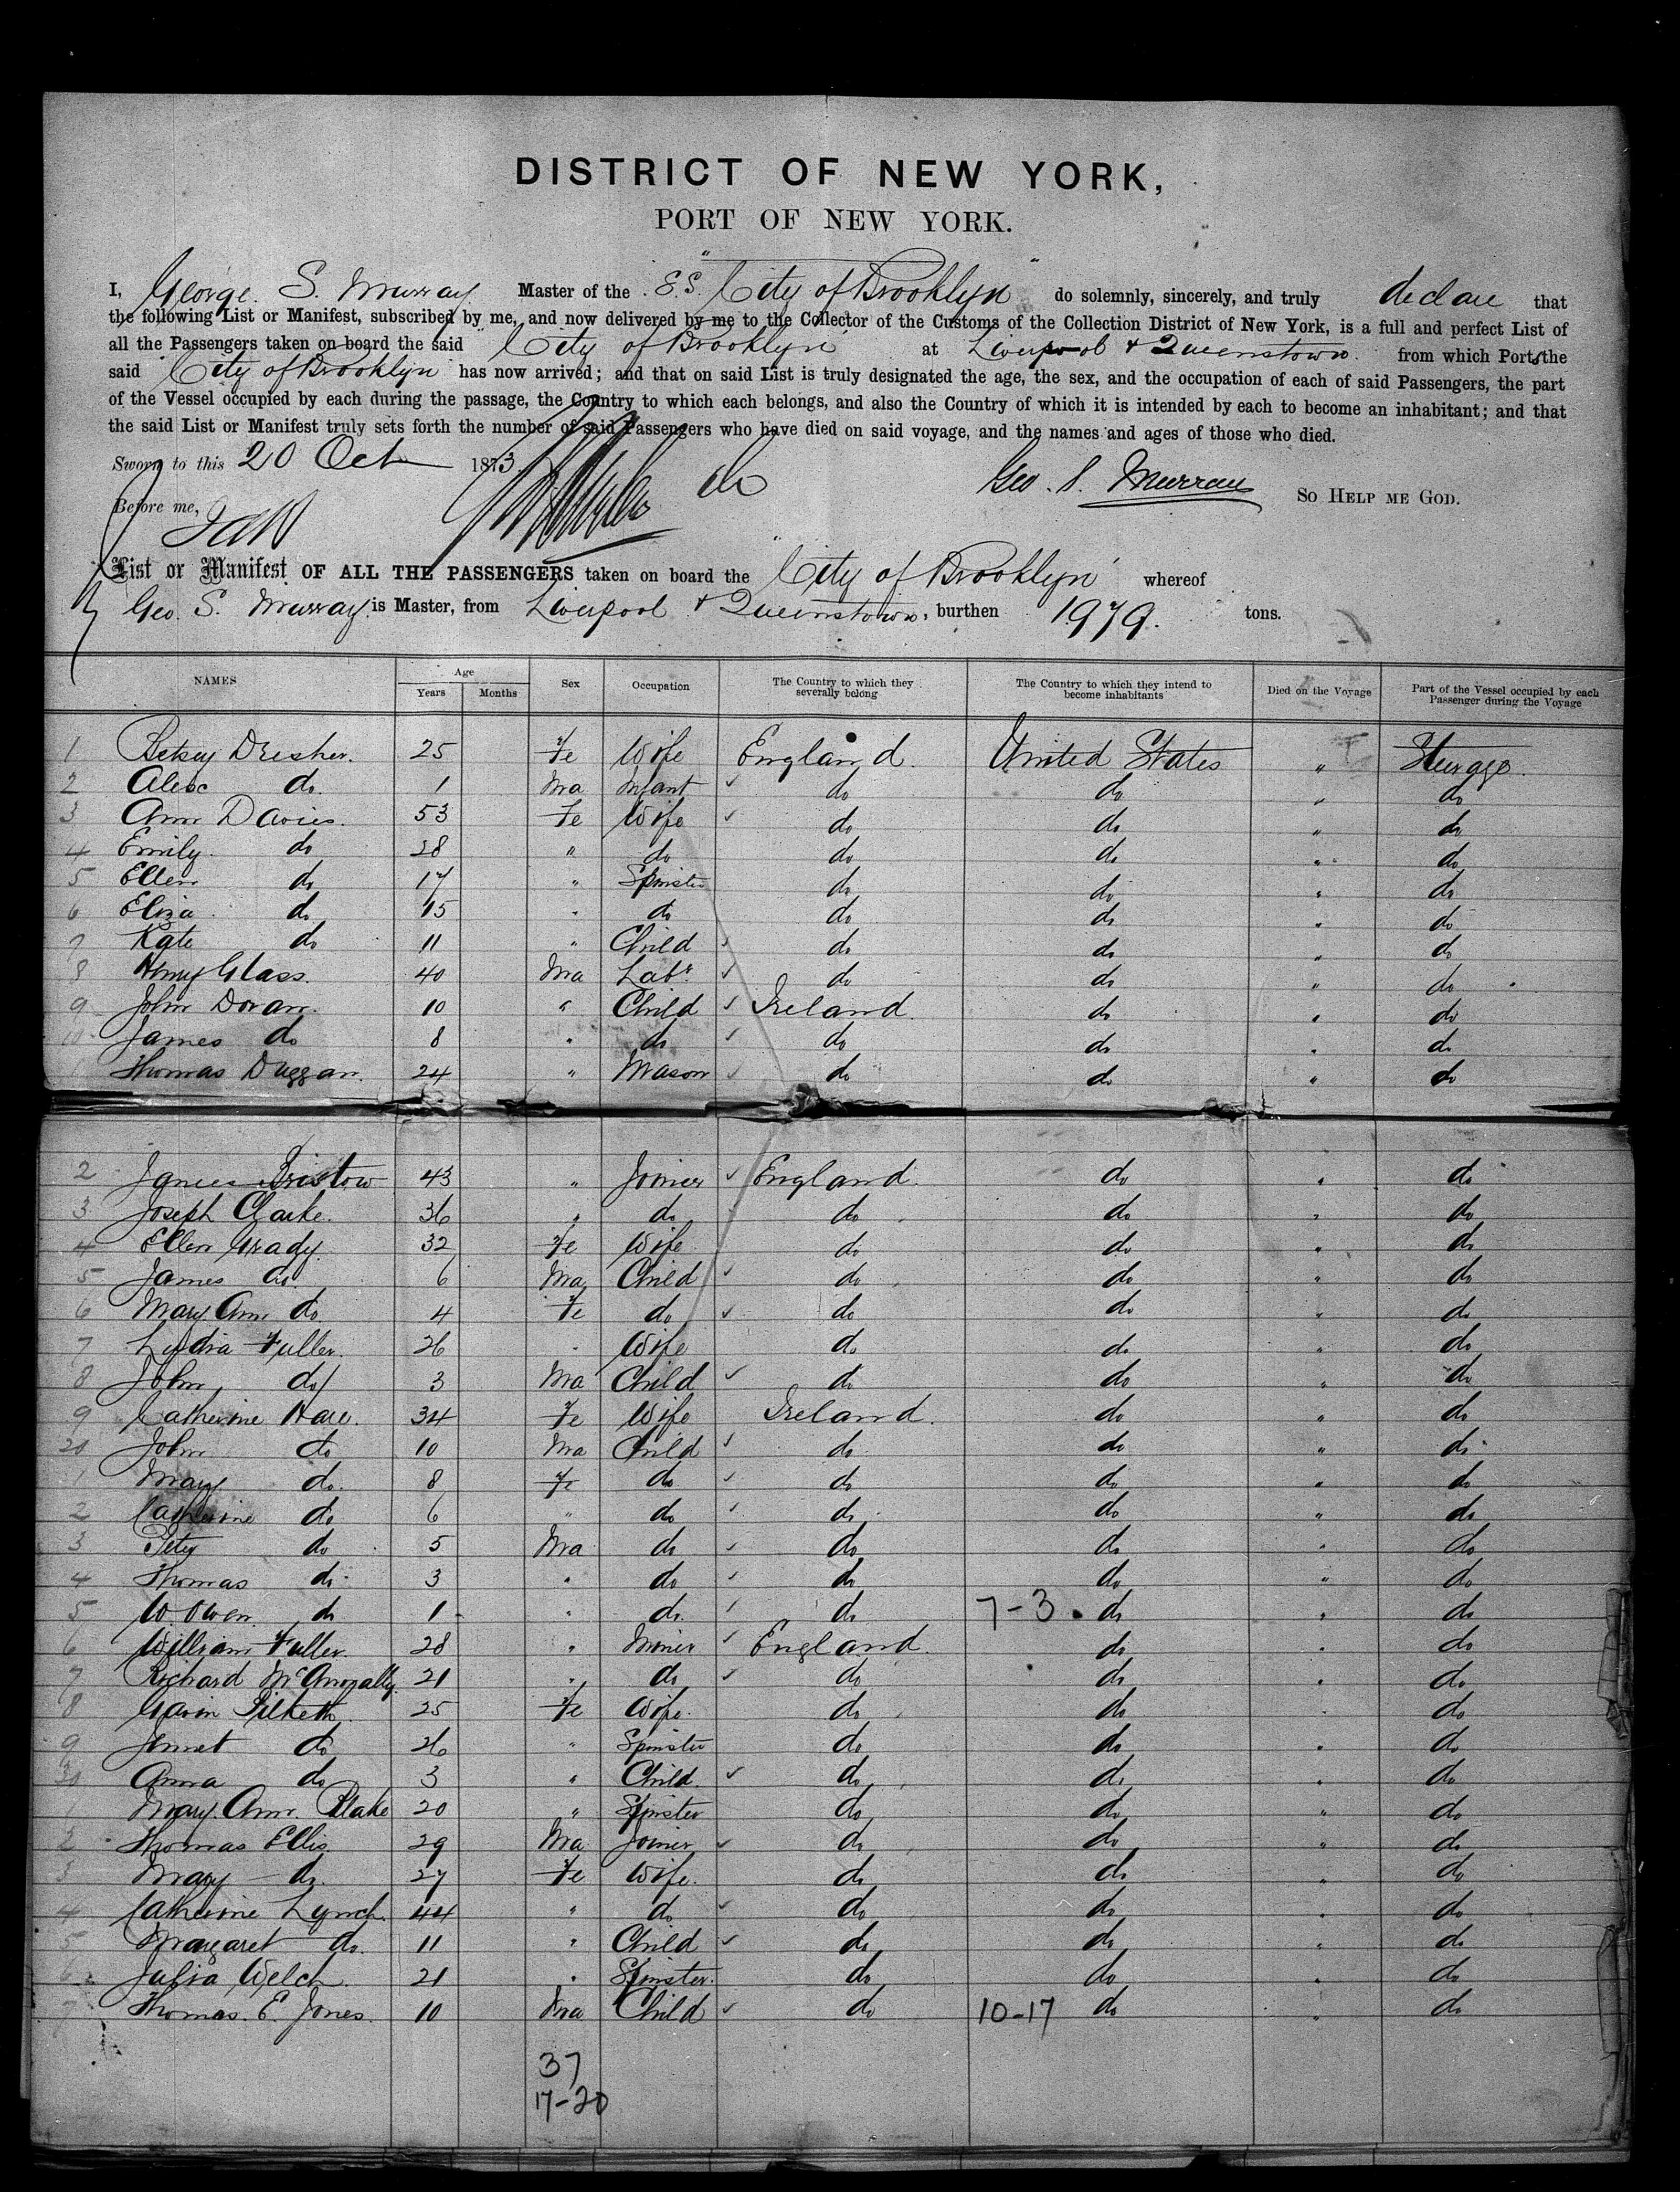 DISTRICT OF NEW YORK,
PORT OF NEW YORK.
I, George. S. Murray Master of the S.S. "City of Brooklyn" do solemnly, sincerely, and truly declare that
the following List or Manifest, subscribed by me, and now delivered by me to the Collector of the Customs of the Collection District of New York, is a full and perfect List of
all the Passengers taken on board the said "City of Brooklyn" at Liverpool & Queenstown. from which Ports the
said City of Brooklyn has now arrived; and that on said List is truly designated the age, the sex, and the occupation of each of said Passengers, the part
of the Vessel occupied by each during the passage, the Country to which each belongs, and also the Country of which it is intended by each to become an inhabitant; and that
the said List or Manifest truly sets forth the number of said Passengers who have died on said voyage, and the names and ages of those who died.
Sworn to this 20 Oct 1873. Geo. S. Murray So HELP ME GOD.
Before me,
List or Manifest OF ALL THE PASSENGERS taken on board the "City of Brooklyn" whereof
Geo. S. Murray. is Master, from Liverpool & Queenstown, burthen 1979. tons.
NAMES Age Years Months Sex Occupation The Country to which they severally belong The Country to which they intend to become inhabitants Died on the Voyage Part of the Vessel occupied by each Passenger during the Voyage
1 Betsey Dresher. 25 Fe Wife England. United States " Steerage.
2 Alex do. 1 Ma Infant do do " do
3 Ann Davies. 53 Fe Wife do do " do
4 Emily. do 28 " do do do " do
5 Ellen do 17 " Spinster do do " do
6 Eliza do 15 " do do do " do
7 Kate do 11 " Child do do " do
8 Henry Glass. 40 Ma Labr. do do " do
9 John Doran. 10 " Child Ireland. do " do
10 James do 8 " do do do " do
1 Thomas Duggan. 24 " Mason do do " do
2 James Bristow 43 " Joiner England. do " do
3 Joseph Clarke. 36 " do do do " do
4 Ellen Grady. 32 Fe Wife do do " do
5 James do 6 Ma Child do do " do
6 Mary Ann do 4 Fe do do do " do
7 Lydia Fuller. 26 " Wife do do " do
8 John do 3 Ma Child do do " do
9 Catherine Hare. 34 Fe Wife Ireland. do " do
20 John do 10 Ma Child do do " do
1 Mary do. 8 Fe do do do " do
2 Catherine do 6 " do do do " do
3 Peter do 5 Ma do do do " do
4 Thomas do 3 " do do do " do
5 W. Owen do 1 " do do 7-3 do " do
6 William Fuller. 28 " Miner England. do " do
7 Richard 21 " do do do " do
8 Gavin 25 Fe Wife. do do " do
9 Jennet do 26 " Spinster do do " do
30 Anna do 3 " Child. do do " do
1 Mary. Ann. Blake 20 " Spinster do do " do
2 Thomas Ellis. 29 Ma Joiner do do " do
3 Mary do. 27 Fe Wife. do do " do
4 Catherine Lynch. 44 " do do do " do
5 Margaret do. 11 " Child do do " do
6 Julia Welch. 21 " Spinster. do do " do
7 Thomas. E. Jones. 10 Ma Child do 10-17 do " do
37
17-20